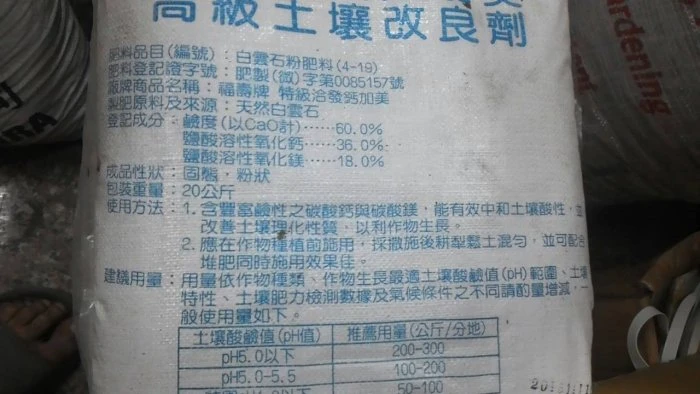 高級土壤改良劑
肥料品目(編號)：白雲石粉肥料(4-19)
肥料登記證字號：肥製(微)字第0085157號
廠牌商品名稱：福壽牌 特級洽發鈣加美
製肥原料及來源：天然白雲石
登記成分：鹼度(以CaO計)……60.0%
鹽酸溶性氧化鈣……36.0%
鹽酸溶性氧化鎂……18.0%
成品性狀：固態，粉狀
包裝重量：20公斤
使用方法：1.含豐富鹼性之碳酸鈣與碳酸鎂，能有效中和土壤酸性，並
改善土壤理化性質，以利作物生長。
2.應在作物種植前施用，採撒施後耕犁鬆土混勻，並可配合
堆肥同時施用效果佳。
建議用量：用量依作物種類、作物生長最適土壤酸鹼值(pH)範圍、土壤
特性、土壤肥力檢測數據及氣候條件之不同請酌量增減，一
般使用量如下。
土壤酸鹼值(pH值) 推薦用量(公斤/分地)
pH5.0以下 200-300
pH5.0-5.5 100-200
50-100
RA
rdening